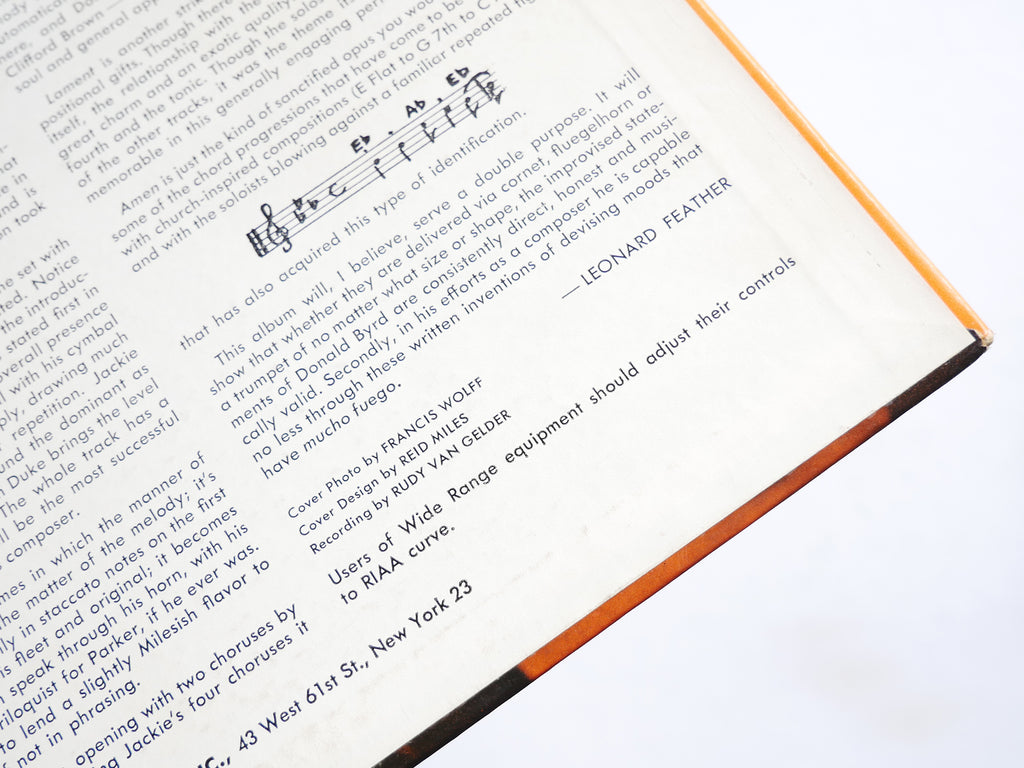 here, and Do
Clifford Brown
soul and general app
Lament is another strik
positional gifts. Though there
itself, the relationship with the
great charm and an exotic quality
fourth and the tonic. Though the solos
of the other tracks, it was the theme it
memorable in this generally engaging per
Amen is just the kind of sanctified opus you wou
some of the chord progressions that have come to be
with church-inspired compositions (E Flat to G 7th to C
and with the soloists blowing against a familiar repeated
E♭ . A♭ . E♭
that has also acquired this type of identification.
This album will, I believe, serve a double purpose. It will
show that whether they are delivered via cornet, fluegelhorn or
a trumpet of no matter what size or shape, the improvised state-
ments of Donald Byrd are consistently direct, honest and musi-
cally valid. Secondly, in his efforts as a composer he is capable
no less through these written inventions of devising moods that
have mucho fuego.
— LEONARD FEATHER
Cover Photo by FRANCIS WOLFF
Cover Design by REID MILES
Recording by RUDY VAN GELDER
Users of Wide Range equipment should adjust their controls
to RIAA curve.
hat
e in
nd is
on took
he set with
ted. Notice
the introduc-
stated first in
overall presence
with his cymbal
ply, drawing much
repetition. Jackie
und the dominant as
Duke brings the level
The whole track has a
ll be the most successful
composer.
mes in which the manner of
the matter of the melody; it's
lly in staccato notes on the first
is fleet and original; it becomes
speak through his horn, with his
riloquist for Parker, if he ever was.
to lend a slightly Milesish flavor to
not in phrasing.
opening with two choruses by
ng Jackie's four choruses it
NC., 43 West 61st St., New York 23